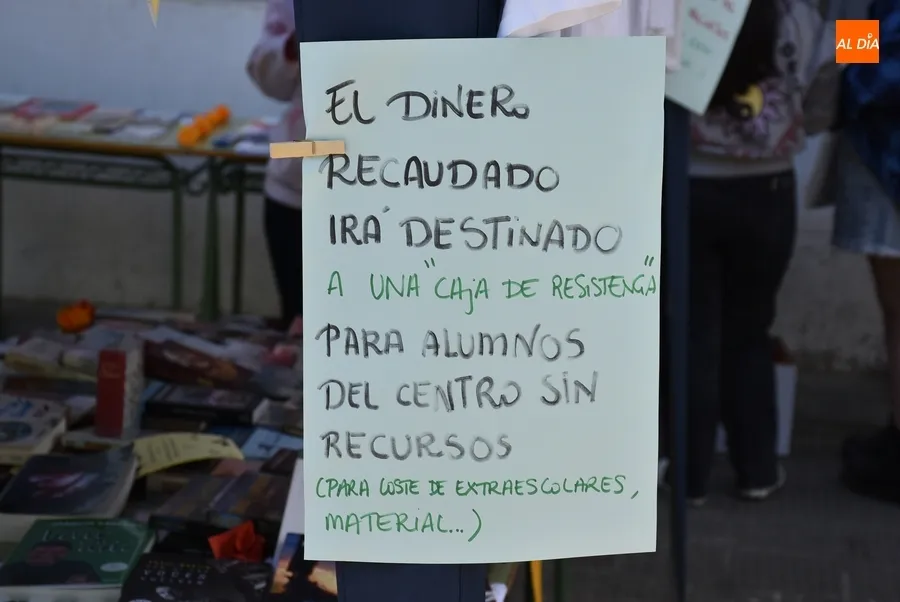 AL DÍA
EL DINERO
RECAUDADO
IRÁ DESTINADO
A UNA "CAJA DE RESISTENCIA"
PARA ALUMNOS
DEL CENTRO SIN
RECURSOS
(PARA COSTE DE EXTRAESCOLARES,
MATERIAL...)